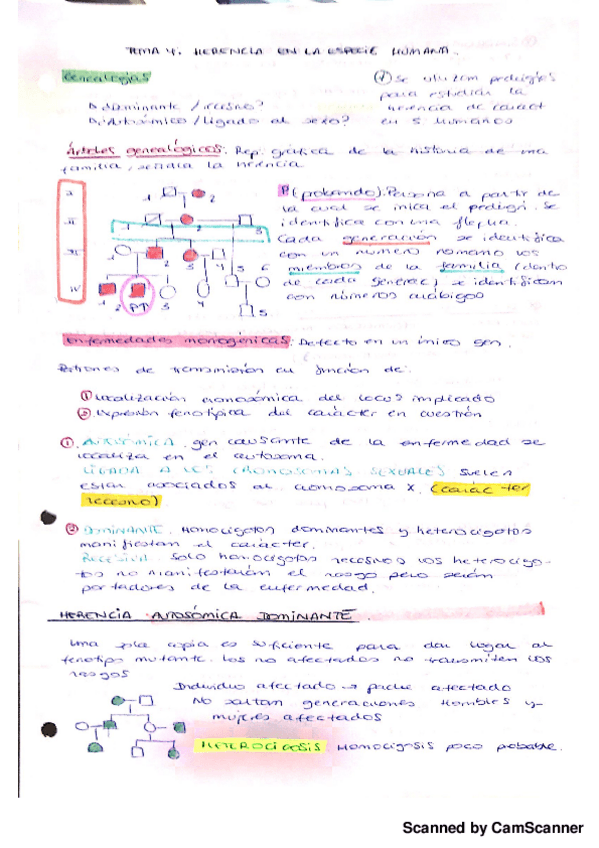 TEMA 4: HERENCIA EN LA ESPECIE HUMANA.
Genealogías
¿dominante / recesivo?
¿Autosómico / ligado al sexo?
Se utilizan pedigrís
para estudiar la
herencia de caract
en s humanos
Árboles genealógicos: Rep. gráfica de la historia de una
familia, señala la herencia
P (probando). Persona a partir de
la cual se inicia el pedigrí. Se
identifica con una flecha.
Cada generación se identifica
con un numero romano los
miembros de la familia (dentro
de cada generac) se identifican
con números arábigos
I
II
III
IV
1 2
1 2 3
1 2 3 4 5 6
1 2 3 4 5
Enfermedades monogénicas: Defecto en un único gen.
Patrones de transmisión en función de:
① Localización cromosómica del locus implicado
② Expresión fenotípica del carácter en cuestión
①. AUTOSÓMICA. gen causante de la enfermedad se
localiza en el autosoma.
LIGADA A LOS CROMOSOMAS SEXUALES suelen
estar asociados al cromosoma X. (carácter
recesivo).
② DOMINANTE. Homocigotos dominantes y heterocigotos
manifiestan el carácter.
RECESIVA. Solo homocigotos recesivos los heterocigo-
tos no manifestarán el rasgo pero serán
portadores de la enfermedad.
HERENCIA AUTOSÓMICA DOMINANTE.
Una sola copia es suficiente para dar lugar al
fenotipo mutante. Los no afectados no transmiten los
rasgos
Individuo afectado → padre afectado
No saltan generaciones Hombres y
mujeres afectados
HETEROCIGOSIS Homocigosis poco probable.
Scanned by CamScanner